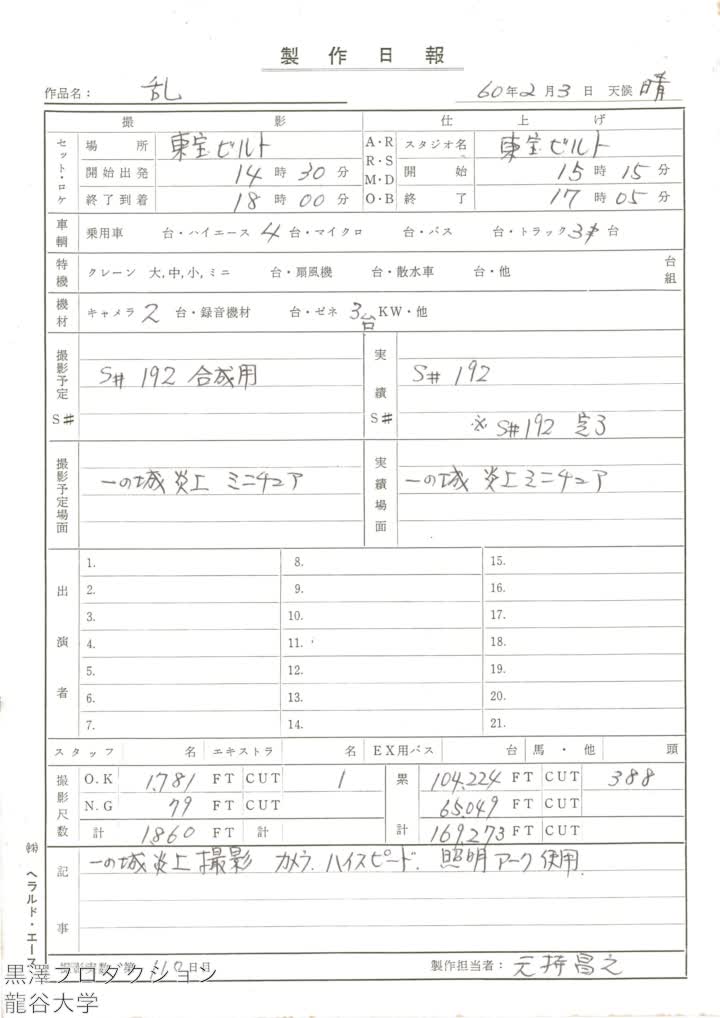 製作日報
作品名： 乱 60年2月3日 天候 晴
撮影 仕上げ
セット・ロケ 場所 東宝ビルト A・R R・S M・D O・B スタジオ名 東宝ビルト
開始出発 14時30分 開始 15時15分
終了到着 18時00分 終了 17時05分
車輌 乗用車 台・ハイエース 4 台・マイクロ 台・バス 台・トラック 3 台
特機 クレーン 大,中,小,ミニ 台・扇風機 台・散水車 台・他 台組
機材 キャメラ 2 台・録音機材 台・ゼネ 3台 KW・他
撮影予定 S# S# 192 合成用 実績 S# S# 192
※ S#192 定3
撮影予定場面 一の城 炎上 ミニチュア 実績場面 一の城 炎上ミニチュア
出演者
1. 8. 15.
2. 9. 16.
3. 10. 17.
4. 11. 18.
5. 12. 19.
6. 13. 20.
7. 14. 21.
スタッフ 名 エキストラ 名 EX用バス 台 馬・他 頭
撮影尺数 O.K 1.781 FT CUT 1 累計 104.224 FT CUT 388
N.G 79 FT CUT 65.049 FT CUT
計 1860 FT 計 169.273 FT CUT
記事 一の城炎上撮影 カメラ.ハイスピード. 照明アーク使用.
㈱ ヘラルド・エース
撮影実数 第110日目 製作担当者： 元持昌之
黒澤プロダクション
龍谷大学